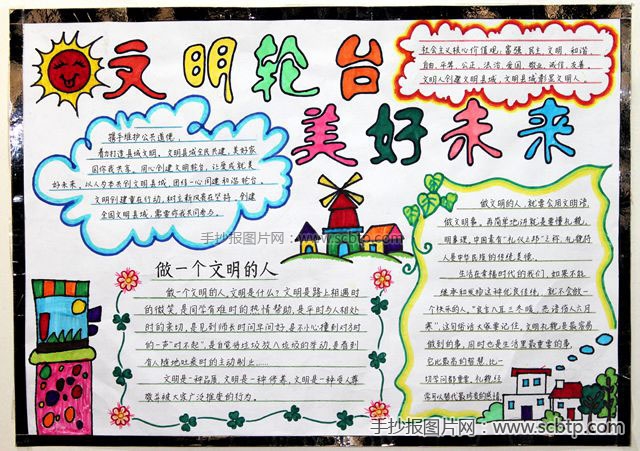 文明轮台
美好未来
社会主义核心价值观，富强、民主、文明、和谐、
自由、平等、公正、法治、爱国、敬业、诚信、友善。
文明人创建文明县城，文明县城彰显文明人。
携手维护公共道德，
着力打造县城文明。文明县城全民共建，美好家
园你我共享。用心创建文明轮台，让爱成就美
好未来。以人为本共创文明县城，团结一心同建和谐轮台。
文明创建重在行动，树立新风贵在坚持。创建
全国文明县城，需要你我共同努力。
手抄报图片网：www.scbtp.com
做一个文明的人
做一个文明的人，文明是什么？文明是路上相遇时
的微笑，是同学有难时的热情帮助，是平时与人相处
时的亲切，是见到师长时问早问好，是不小心撞到对方时
的一声“对不起”，是自觉将垃圾放入垃圾的举动，是看到
有人随地吐痰时的主动制止……
文明是一种品质，文明是一种修养，文明是一种受人尊
敬并被大家广泛推崇的行为。
做文明的人，就要会用文明语，
做文明事。再简单地讲就是要懂礼貌，
明事理。中国素有“礼仪之邦”之称，礼貌待
人是中华民族的传统美德。
生活在幸福时代的我们，如果不能
继承和发扬这种优良传统，就不会做一
个快乐的人。“良言入耳三冬暖，恶语伤人六月
寒”，这句俗语大家要记住，文明礼貌是最容易
做到的事，同时也是生活里最重要的事，
它比最高的智慧，比一
切学问都重要，礼貌经
常可以替代最珍贵的感情。
手抄报图片网：www.scbtp.com